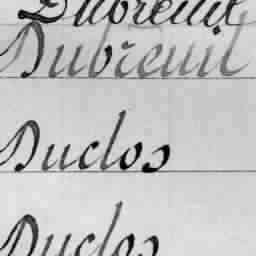 Dubreuil
Dubreuil
Duclos
Duclos